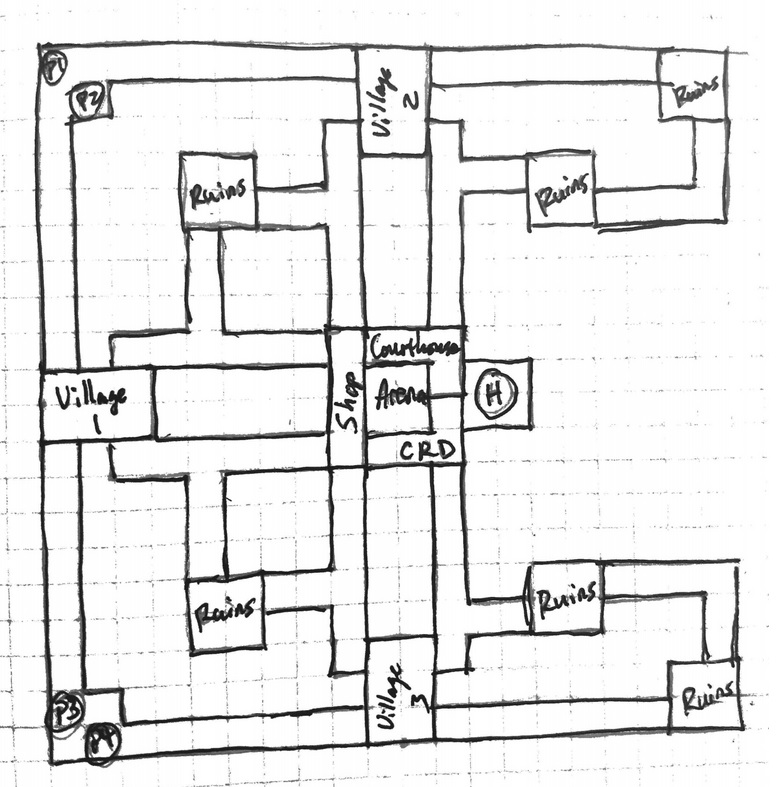 P1
P2
Village
2
Ruins
Ruins
Ruins
Courthouse
Village
1
Shop
Arena
H
CRD
Ruins
Ruins
P3
P4
Village
3
Ruins